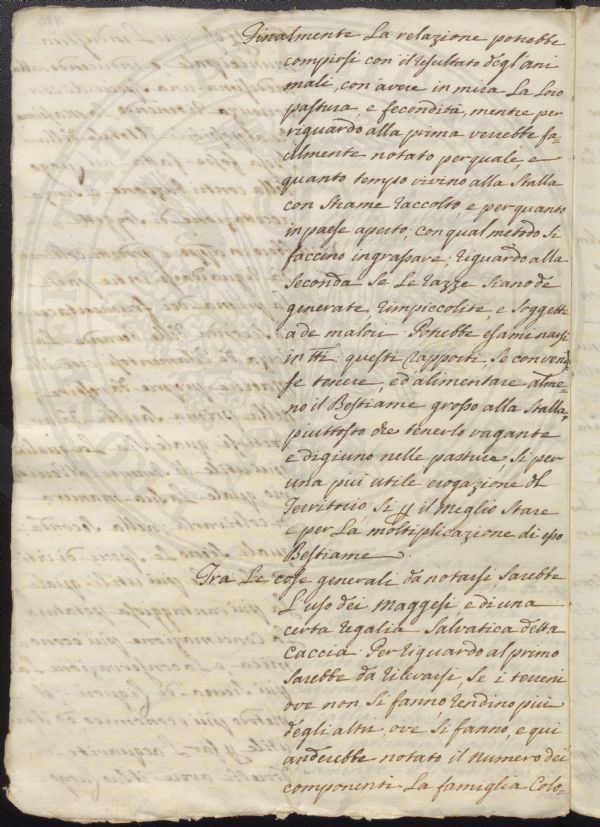 Finalmente La relazione potrebbe
compirsi con il resultato degl'ani
mali, con avere in mira La Loro
pastura, e fecondità, mentre per
riguardo alla prima verrebbe fa=
cilmente notato per quale, e
quanto tempo vivino alla Stalla
con Strame raccolto e per quanto
in paese aperto, con qual metodo Si
faccino ingrassare. riguardo alla
Seconda Se Le razze Siano de
generate, rimpiccolite, e Soggette
a de malori. Potrebbe esaminarsi
in tti questi rapporti, Se conven=
se tenere, ed alimentare alme=
no il Bestiame grosso alla Stalla,
piuttosto che tenerlo vagante
e digiuno nelle pasture, Si per
una piu utile erogazione del
Territorio Si p il meglio Stare
e per La moltiplicazione di esso
Bestiame
Tra Le cose generali da notarsi Sarebbe
L'uso dei Maggesi, e di una
certa regalia Salvatica detta
Caccia. Per riguardo al primo
Sarebbe da rilevarsi, Se i terreni
ove non Si fanno, rendino piu
degli altri, ove Si fanno, e qui
anderebbe notato il numero dei
componenti La famiglia Colo=